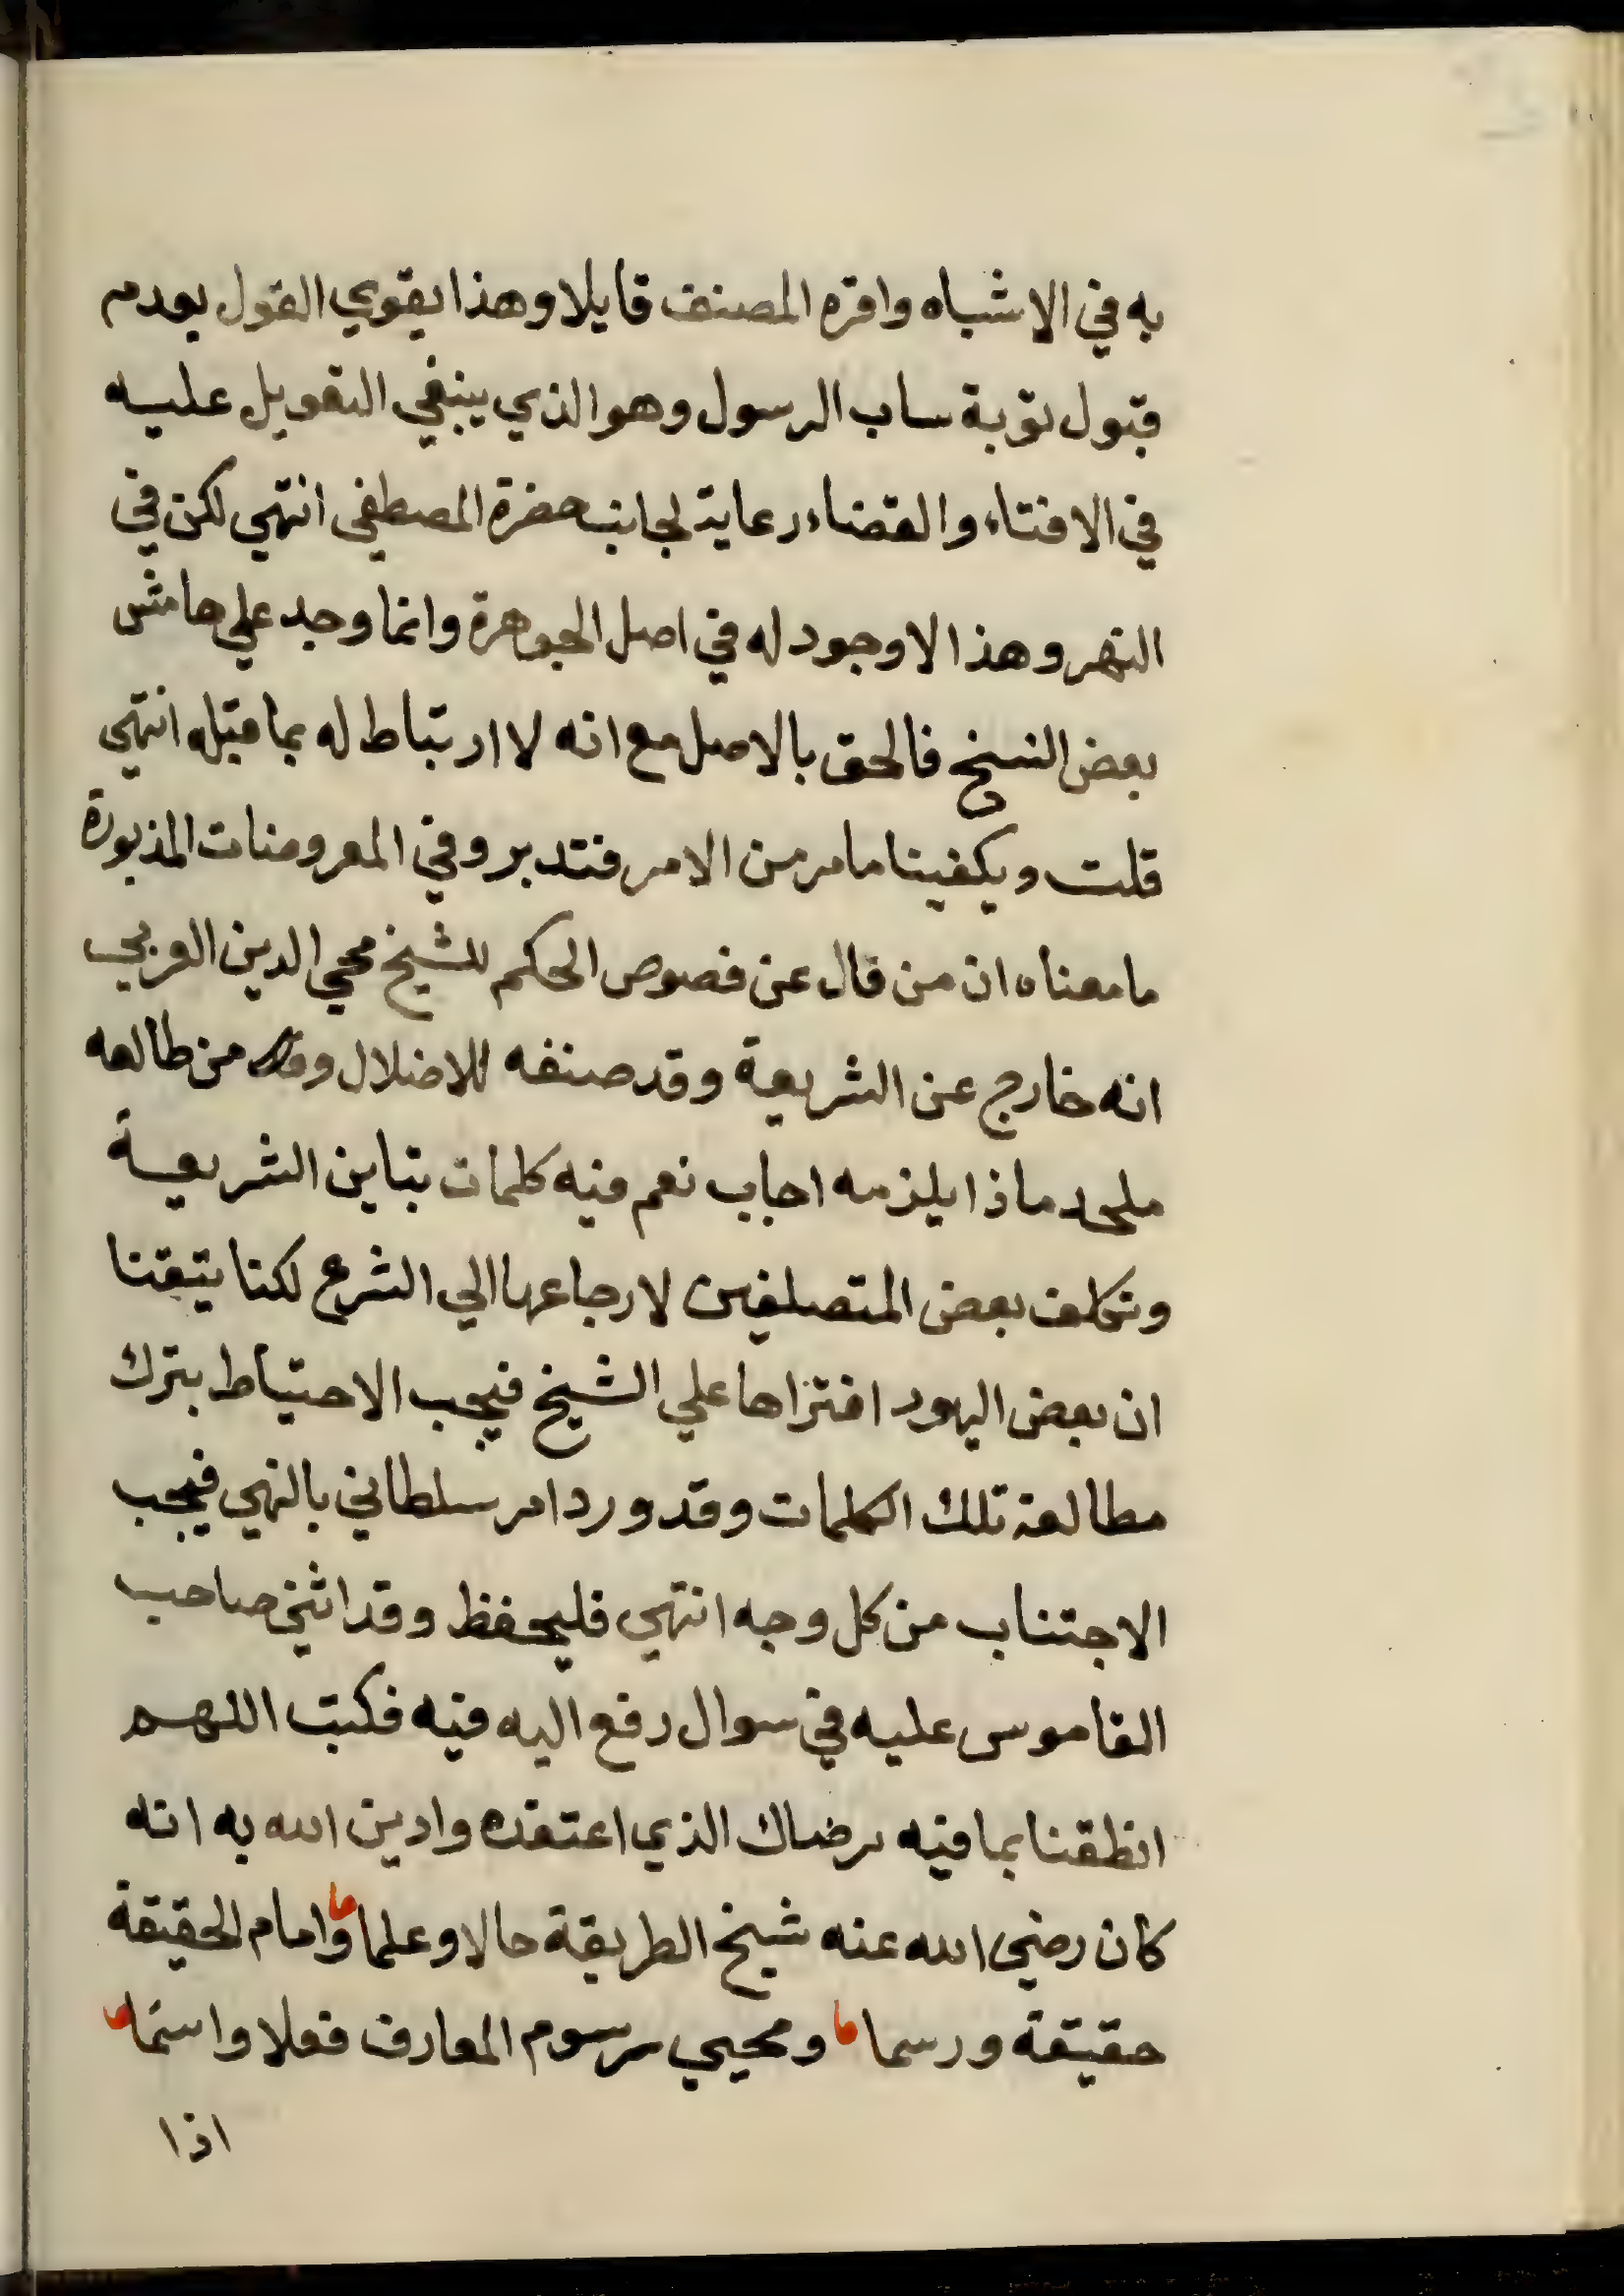 به في الاشباه واقره المصنف قايلا وهذا يقوي القول بعدم
قبول توبة ساب الرسول وهو الذي ينبغي التعويل عليه
في الافتاء والقضاء رعاية لجانب حضرة المصطفى انتهي لكن في
النهر وهذا لا وجود له في اصل الجوهرة وانما وجد علي هامش
بعض النسخ فالحق بالاصل مع انه لا ارتباط له بما قبله انتهي
قلت ويكفينا ما مر من الامر فتدبر وفي المعروضات المذبورة
ما معناه ان من قال عن فصوص الحكم للشيخ محي الدين العربي
انه خارج عن الشريعة وقد صنفه للاضلال ومن طالعه
ملحد ماذا يلزمه اجاب نعم فيه كلمات تباين الشريعة
وتكلف بعض المتصلفين لارجاعها الي الشرع لكنا تيقنا
ان بعض اليهود افتراها علي الشيخ فيجب الاحتياط بترك
مطالعة تلك الكلمات وقد ورد امر سلطاني بالنهي فيجب
الاجتناب من كل وجه انتهي فليحفظ وقد اثني صاحب
القاموس عليه في سوال رفع اليه فيه فكتب اللهم
انطقنا بما فيه رضاك الذي اعتقده وادين الله به انه
كان رضي الله عنه شيخ الطريقة حالا وعلما وامام الحقيقة
حقيقة ورسما ومحيي رسوم المعارف فعلا واسما
اذا